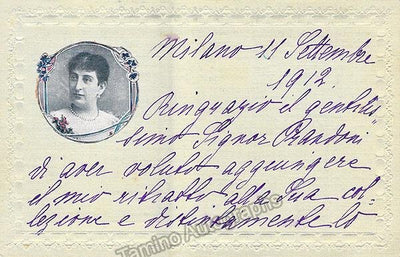 Milano 11 Settembre
1912.
Ringrazio il gentilis
simo Signor Prandoni
di aver voluto aggiungere
il mio ritratto alla Sua col-
lezione e distintamente lo
Tamino Autographs